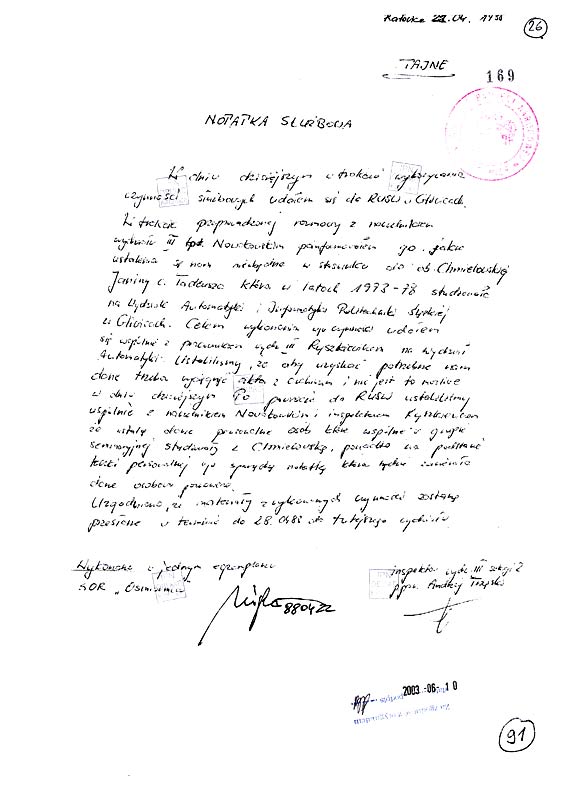 Katowice 22.04. 1988
26
TAJNE
169
NOTATKA SŁUŻBOWA
W dniu dzisiejszym w trakcie wykonywania
czynności służbowych udałem się do RUSW w Gliwicach.
W trakcie przeprowadzonej rozmowy z naczelnikiem
wydziału III Nowakowskim poinformowałem go jakie
ustalenia są nam niezbędne w stosunku do ob. Chmielowskiej
Janiny c. Tadeusza która w latach 1973-78 studiowała
na Wydziale Automatyki i Informatyki Politechniki Śląskiej
w Gliwicach. Celem wykonania czynności udałem
się wspólnie z pracownikiem wydz. III na Wydział
Automatyki. Ustaliliśmy, że aby uzyskać potrzebne nam
dane trzeba wyciągnąć akta z archiwum i nie jest to możliwe
w dniu dzisiejszym. Po powrocie do RUSW ustaliliśmy
wspólnie z naczelnikiem i inspektorem
że ustalą dane personalne osób które wspólnie w grupie
seminaryjnej studiowały z Chmielowską, ponadto na podstawie
teczki personalnej sporządzą notatkę która będzie zawierała
dane osobowe
Uzgodniono, że materiały z wykonanych czynności zostaną
przesłane w terminie do 28.04.88 do tutejszego wydziału.
Wykonano w jednym egzemplarzu
SOR "Ośmiornica"
inspektor wydz. III sekcji 2
ppor. Andrzej
880422
2003 -06- 1 0
Za zgodność z oryginałem
91